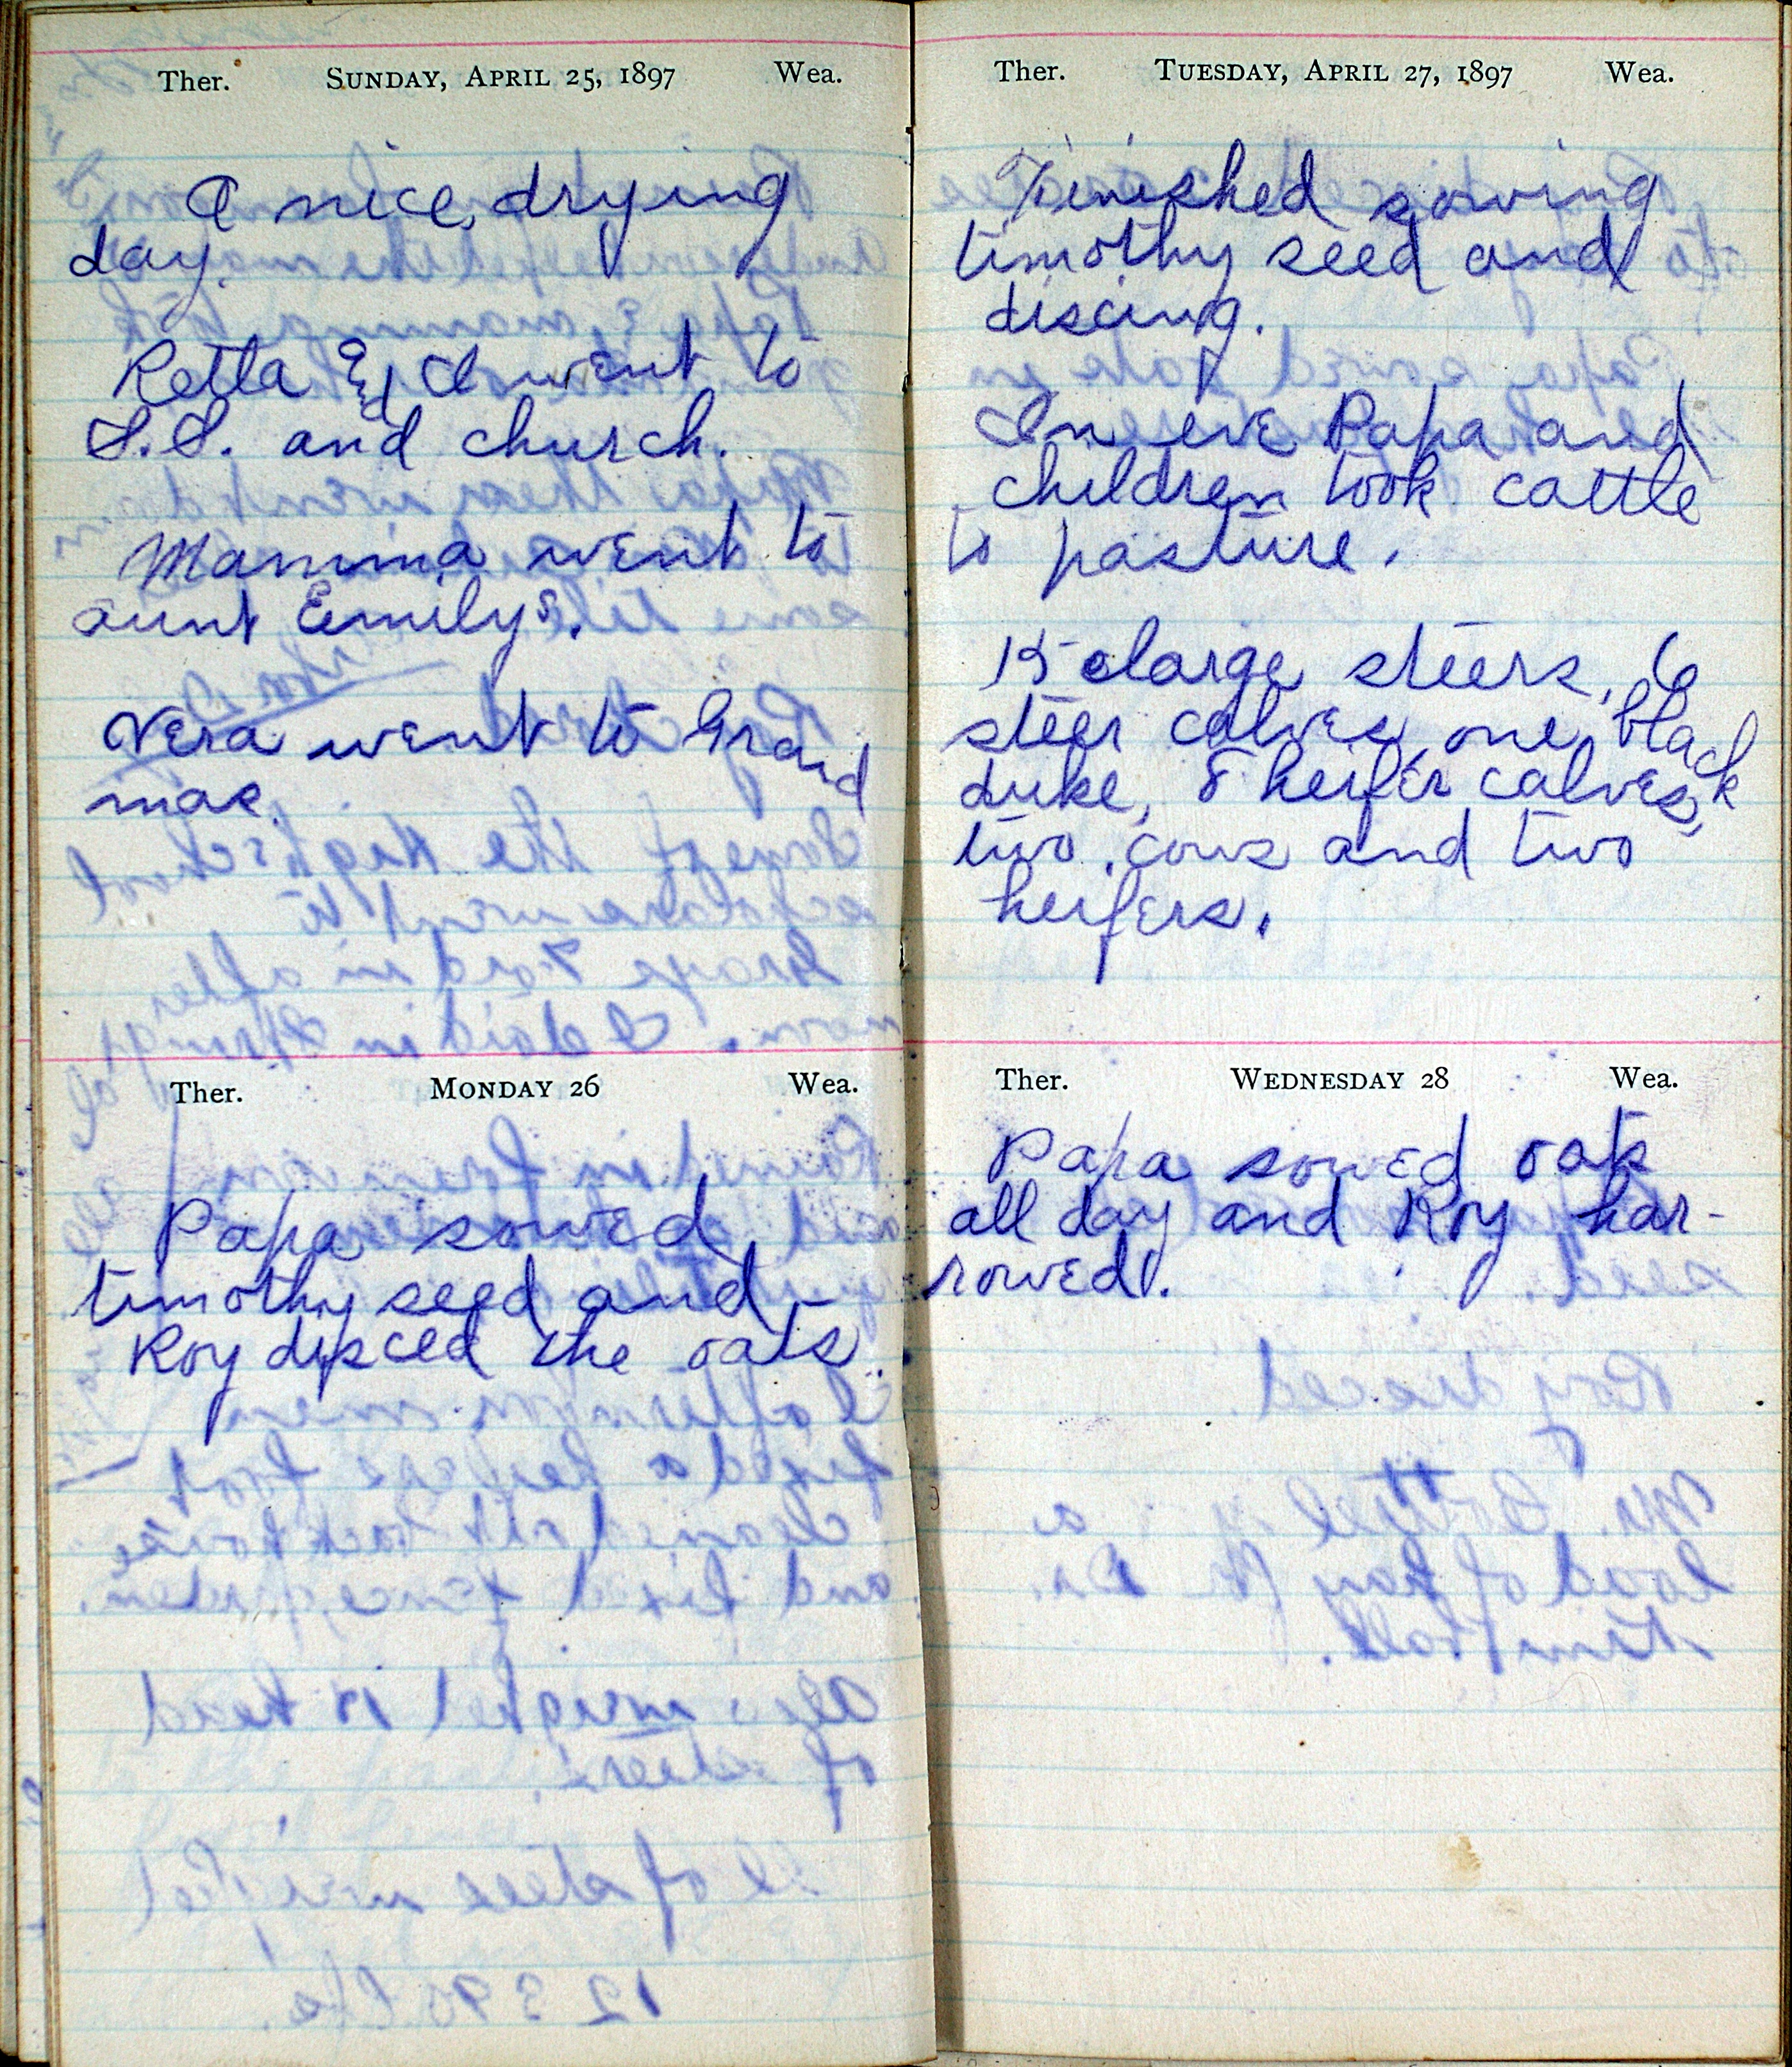 Ther. Sunday, April 25, 1897 Wea.
A nice drying
day.
Retta & I went to
S.S. and church.
Mamma went to
aunt Emilys.
Vera went to Grand
mas.
Ther. Monday 26 Wea.
Papa sowed
timothy seed and
Roy disced the oats.
Ther. Tuesday, April 27, 1897 Wea.
Finished sowing
timothy seed and
discing.
In eve Papa and
children took cattle
to pasture.
15 large steers, 6
steer calves, one black
duke, 8 heifer calves,
two cows and two
heifers.
Ther. Wednesday 28 Wea.
Papa sowed oats
all day and Roy har-
rowed.